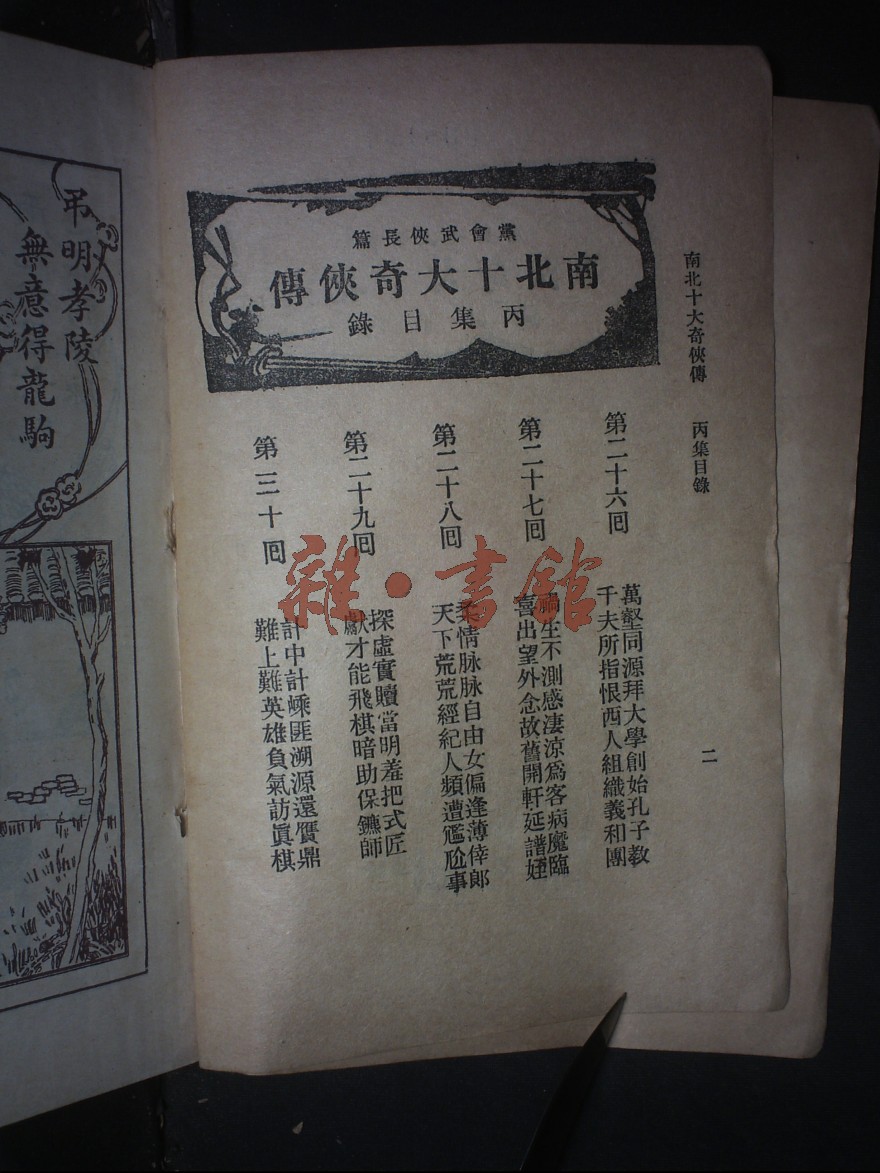 南北十大奇俠傳 丙集目錄
二
黨會武俠長篇
南北十大奇俠傳
丙集目錄
第二十六回
萬壑同源拜大學創始孔子教
千夫所指恨西人組織義和團
第二十七回
禍生不測感淒涼爲客病魔臨
喜出望外念故舊開軒延譜姪
第二十八回
柔情脉脉自由女偏逢薄倖郎
天下荒荒經紀人頻遭尷尬事
第二十九回
探虛實贖當明羞把式匠
獻才能飛棋暗助保鑣師
第三十回
計中計嵊匪溯源還贋鼎
難上難英雄負氣訪眞棋
弔明孝陵
無意得龍駒
雜·書館